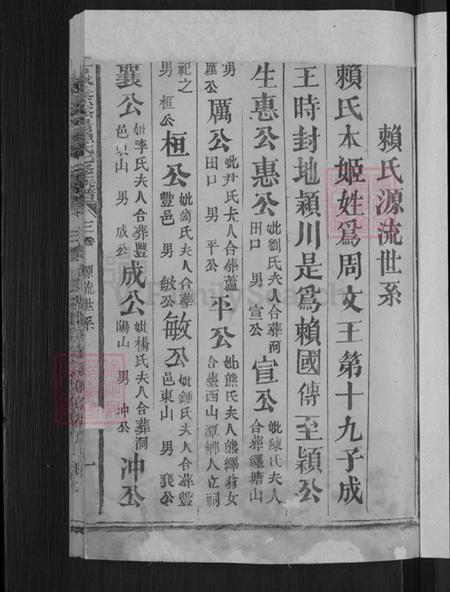 賴氏源流世系
賴氏本姬姓爲周文王第十九子成
王時封地潁川是爲賴國傳至穎公
生惠公惠公妣劉氏夫人合葬河田口 男宣公宣公妣陳氏夫人合葬 塘山
男厲公厲公妣尹氏夫人合葬蘆田口 男平公平公妣熊氏夫人熊繹翁女合葬西山潭鄉人立祠
祀之 男桓公桓公妣 氏夫人合葬豐邑 男敏公敏公妣鍾氏夫人合葬豐邑東山 男襄公
襄公妣李氏夫人合葬豐邑 山 男成公成公妣楊氏夫人合葬洞陽山 男冲公冲公
三卷 源流世系 一
FamilySearch